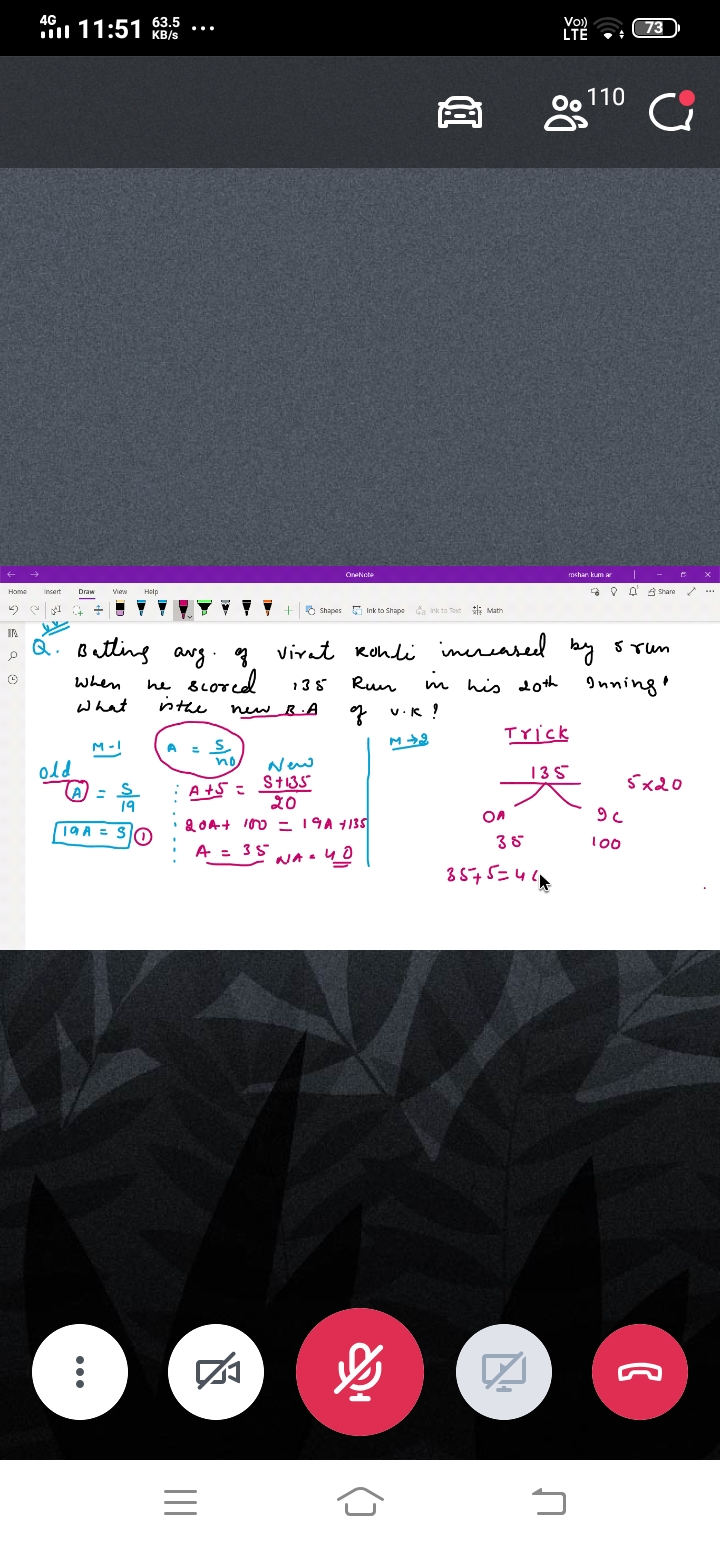 4G 11:51 63.5 KB/s ... Vo)) LTE 73
110
OneNote
roshan kumar
Home Insert Draw View Help
Share
Shapes Ink to Shape Ink to Text Math
Q. Batting avg. of Virat Kohli increased by 5 run
when he scored 135 Run in his 20th Inning.
What is the new B.A of V.K?
Trick
M-1
A = S/no
M→2
Old
New
A = S/19
A+5 = S+135/20
135
5×20
19A = S ①
20A + 100 = 19A + 135
OA
A = 35 NA = 40
35
100
35+5=4